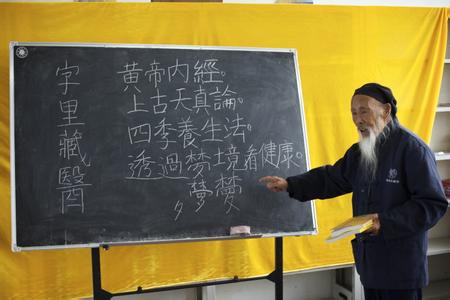 字里藏醫
黃帝内經。
上古天真論。
四季養生法。
透過夢境看健康。
夕夢夢